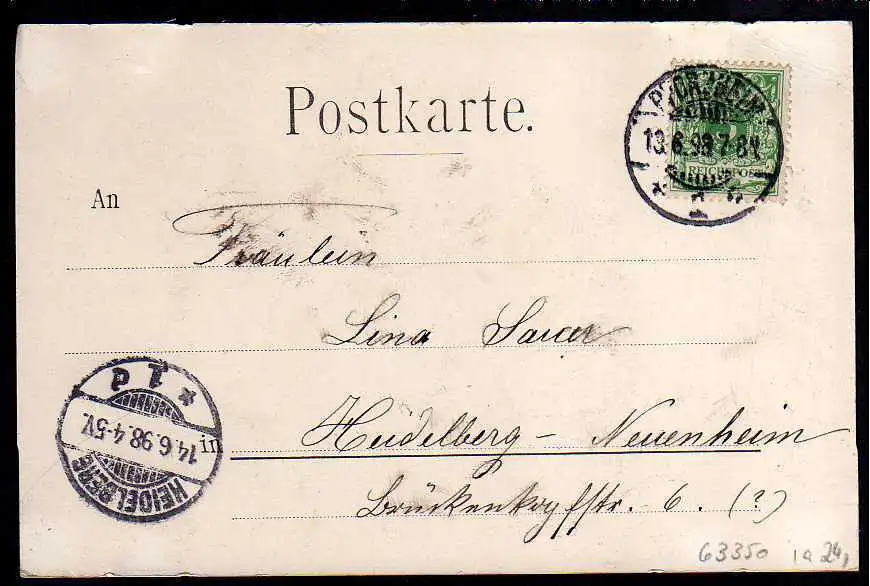 Postkarte.
PFORZHEIM
13.6.98.7-8N.
REICHSPOST
* 1 *
An
Fräulein
Lina
Heidelberg - Neuenheim
in
Brückenkopfstr. 6. (?)
* 1 d
14.6.98.4-5V.
HEIDELBERG
63350 ia 24,